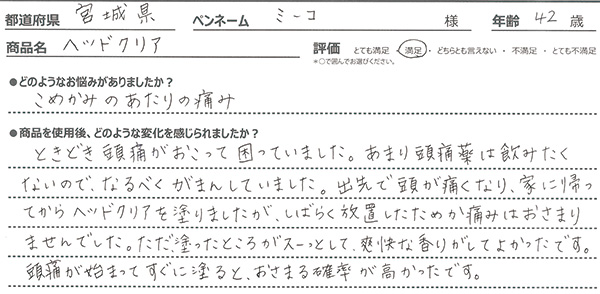 都道府県 宮城県 ペンネーム ミーコ 様 年齢 42 歳
商品名 ヘッドクリア 評価 とても満足・満足・どちらとも言えない・不満足・とても不満足
*○で囲んでお選びください。
●どのようなお悩みがありましたか？
こめかみのあたりの痛み
●商品を使用後、どのような変化を感じられましたか？
ときどき頭痛がおこって困っていました。あまり頭痛薬は飲みたく
ないので、なるべくがまんしていました。出先で頭が痛くなり、家に帰っ
てからヘッドクリアを塗りましたが、しばらく放置したためか痛みはおさまり
ませんでした。ただ塗ったところがスーっとして、爽快な香りがしてよかったです。
頭痛が始まってすぐに塗ると、おさまる確率が高かったです。